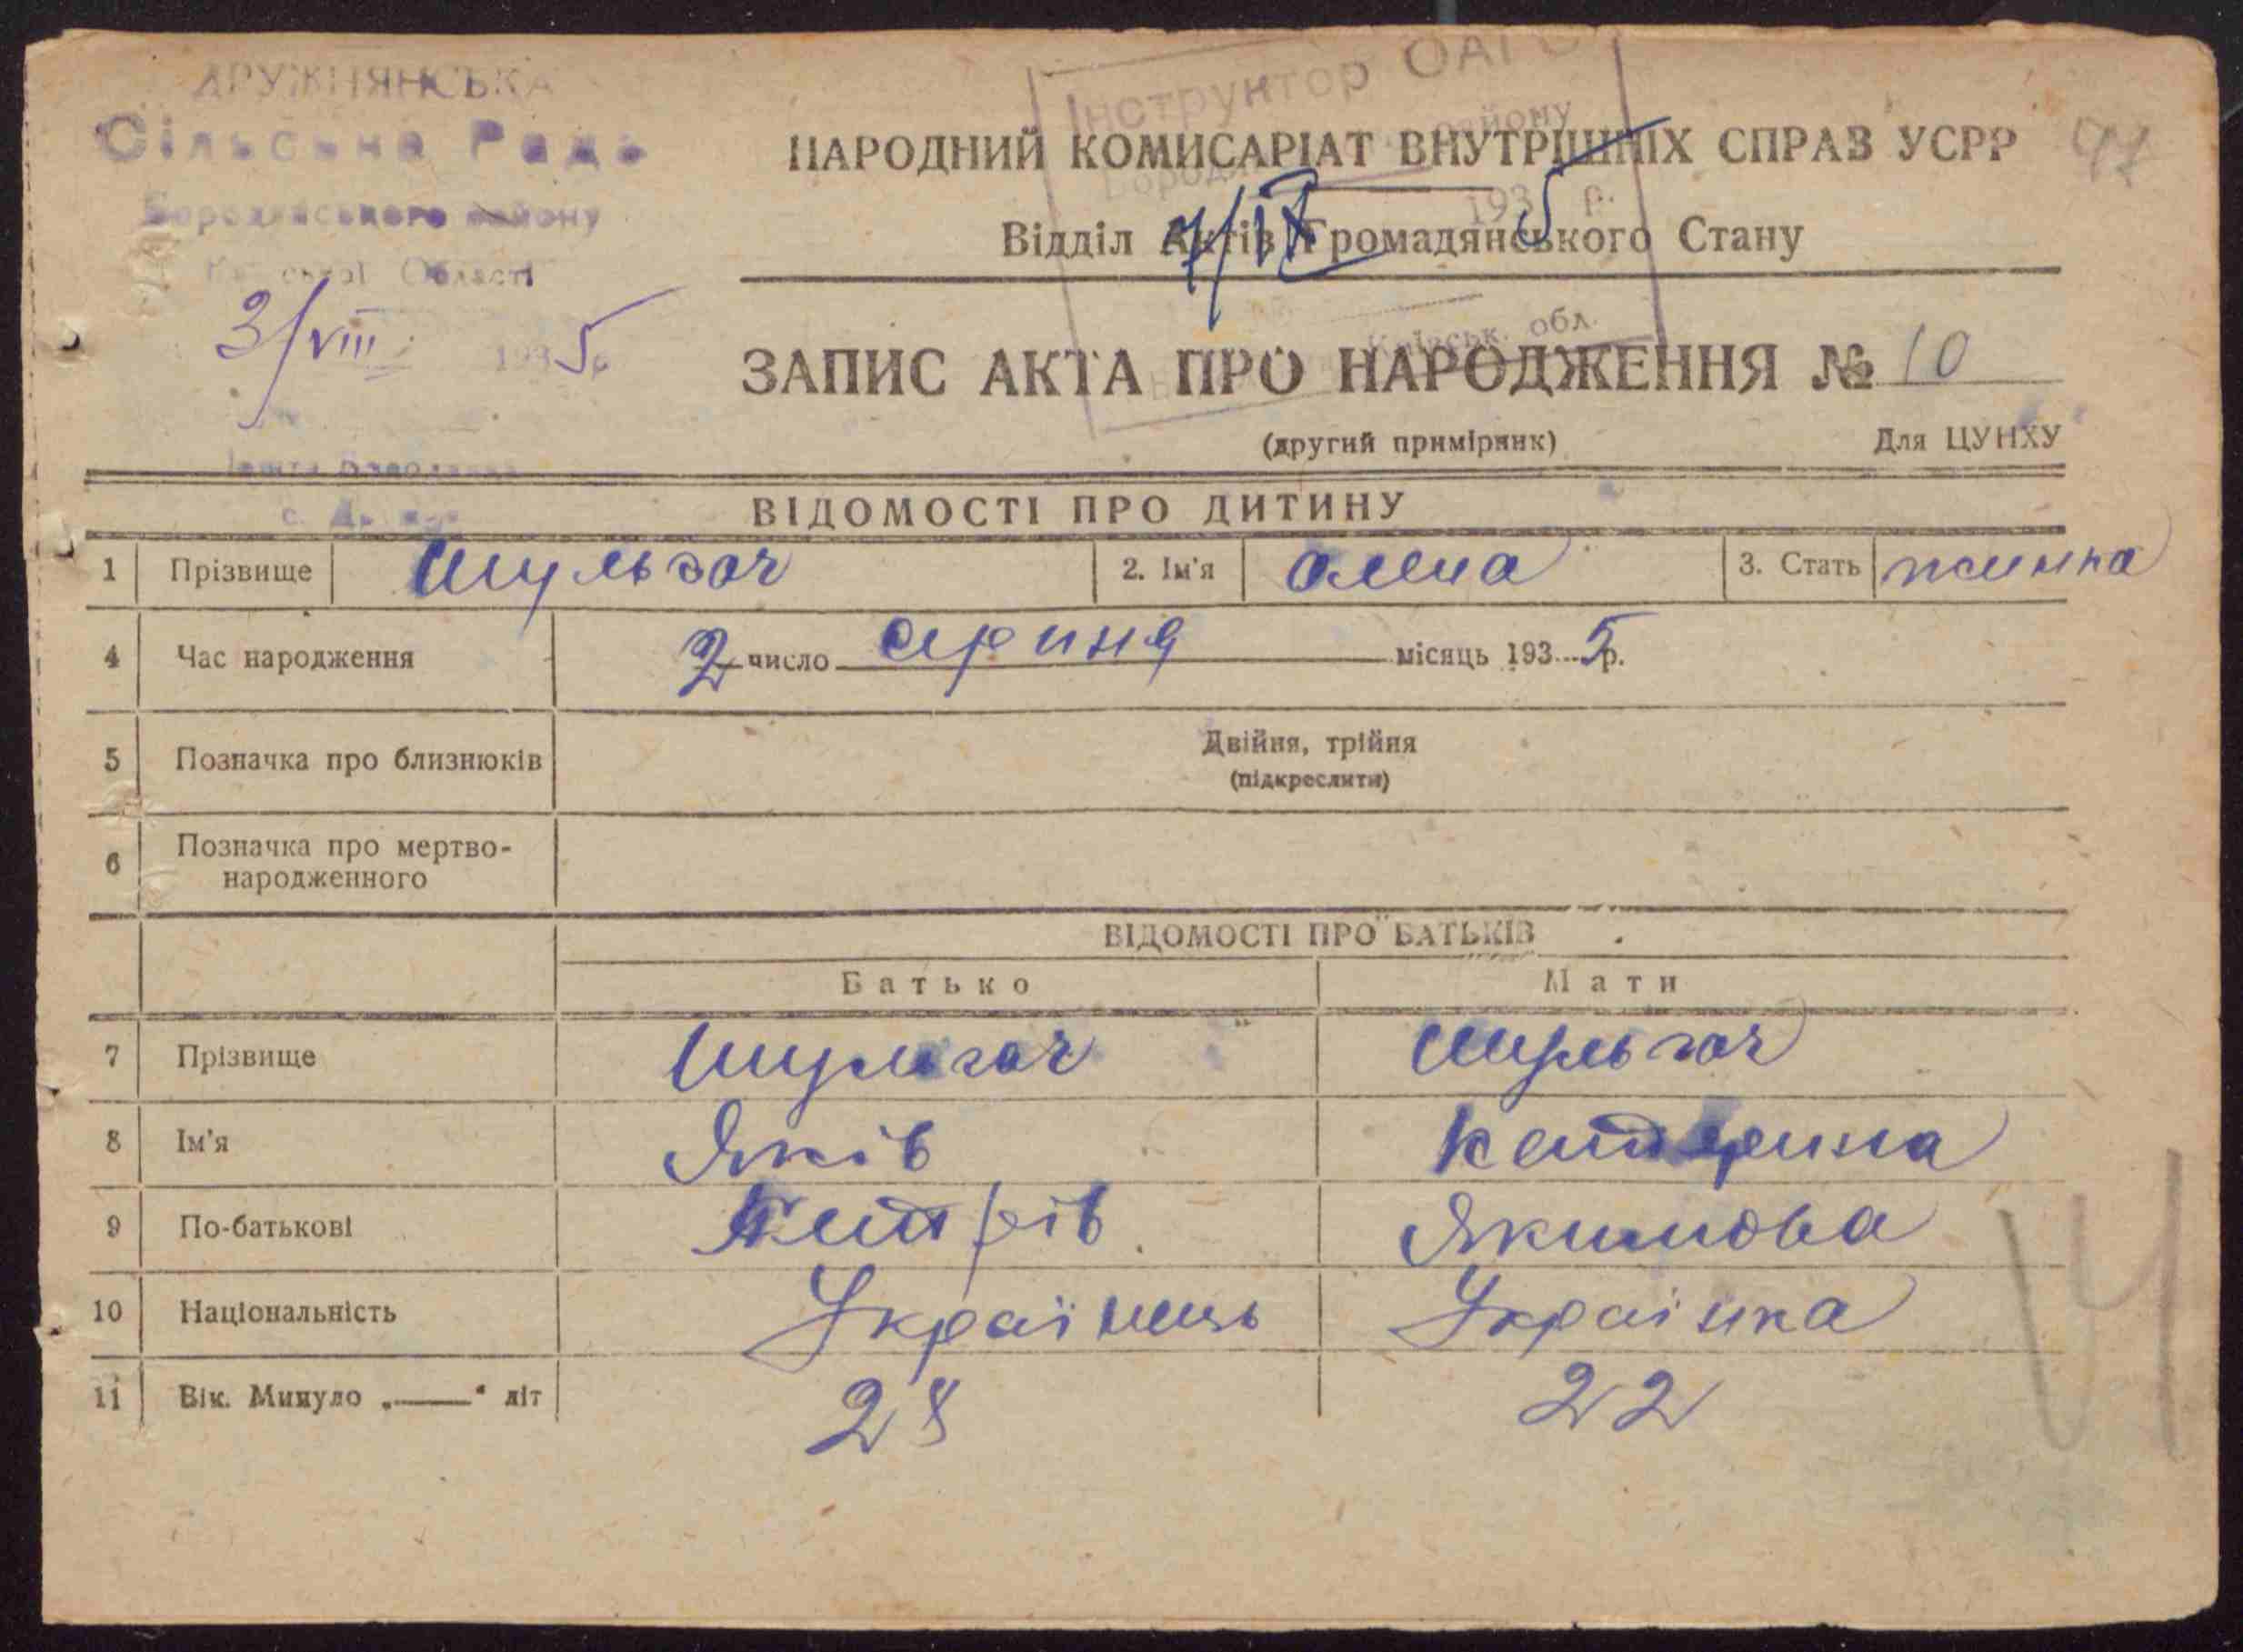 ДРУЖНЯНСЬКА
Сільська Рада
Бородянського району
Області
3/VIII 1935р
Інструктор ОАГС
району
7/IX 1935 р.
Київськ. обл.
97
НАРОДНИЙ КОМИСАРІАТ ВНУТРІШНІХ СПРАВ УСРР
Відділ Актів Громадянського Стану
ЗАПИС АКТА ПРО НАРОДЖЕННЯ № 10
(другий примірник) Для ЦУНХУ
ВІДОМОСТІ ПРО ДИТИНУ
1 Прізвище Шульгач 2. Ім'я Олена 3. Стать жинка
4 Час народження 2 число серпня місяць 1935р.
5 Позначка про близнюків Двійня, трійня
(підкреслити)
6 Позначка про мертво-
народженного
ВІДОМОСТІ ПРО БАТЬКІВ
Батько Мати
7 Прізвище Шульгач Шульгач
8 Ім'я Яків Катерина
9 По-батькові Петрів Якимова
10 Національність Українець Українка
11 Вік. Минуло „——“ літ 28 22